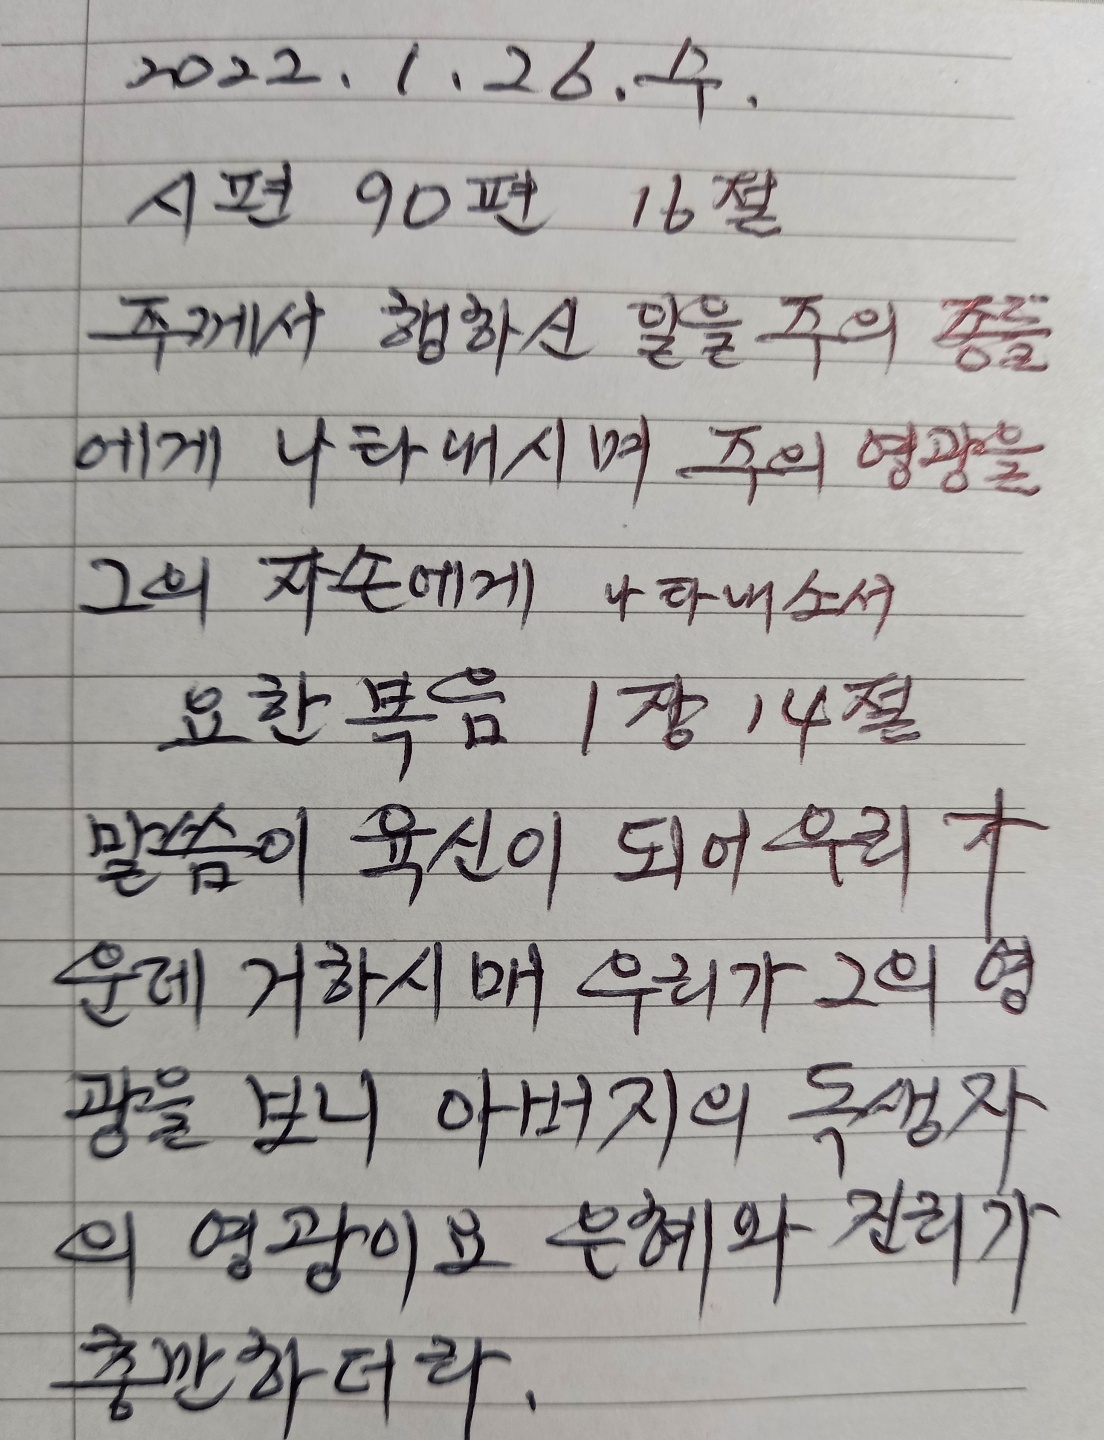 2022. 1. 26. 수.
시편 90편 16절
주께서 행하신 일을 주의 종들
에게 나타내시며 주의 영광을
그의 자손에게 나타내소서
요한복음 1장 14절
말씀이 육신이 되어 우리 가
운데 거하시매 우리가 그의 영
광을 보니 아버지의 독생자
의 영광이요 은혜와 진리가
충만하더라.